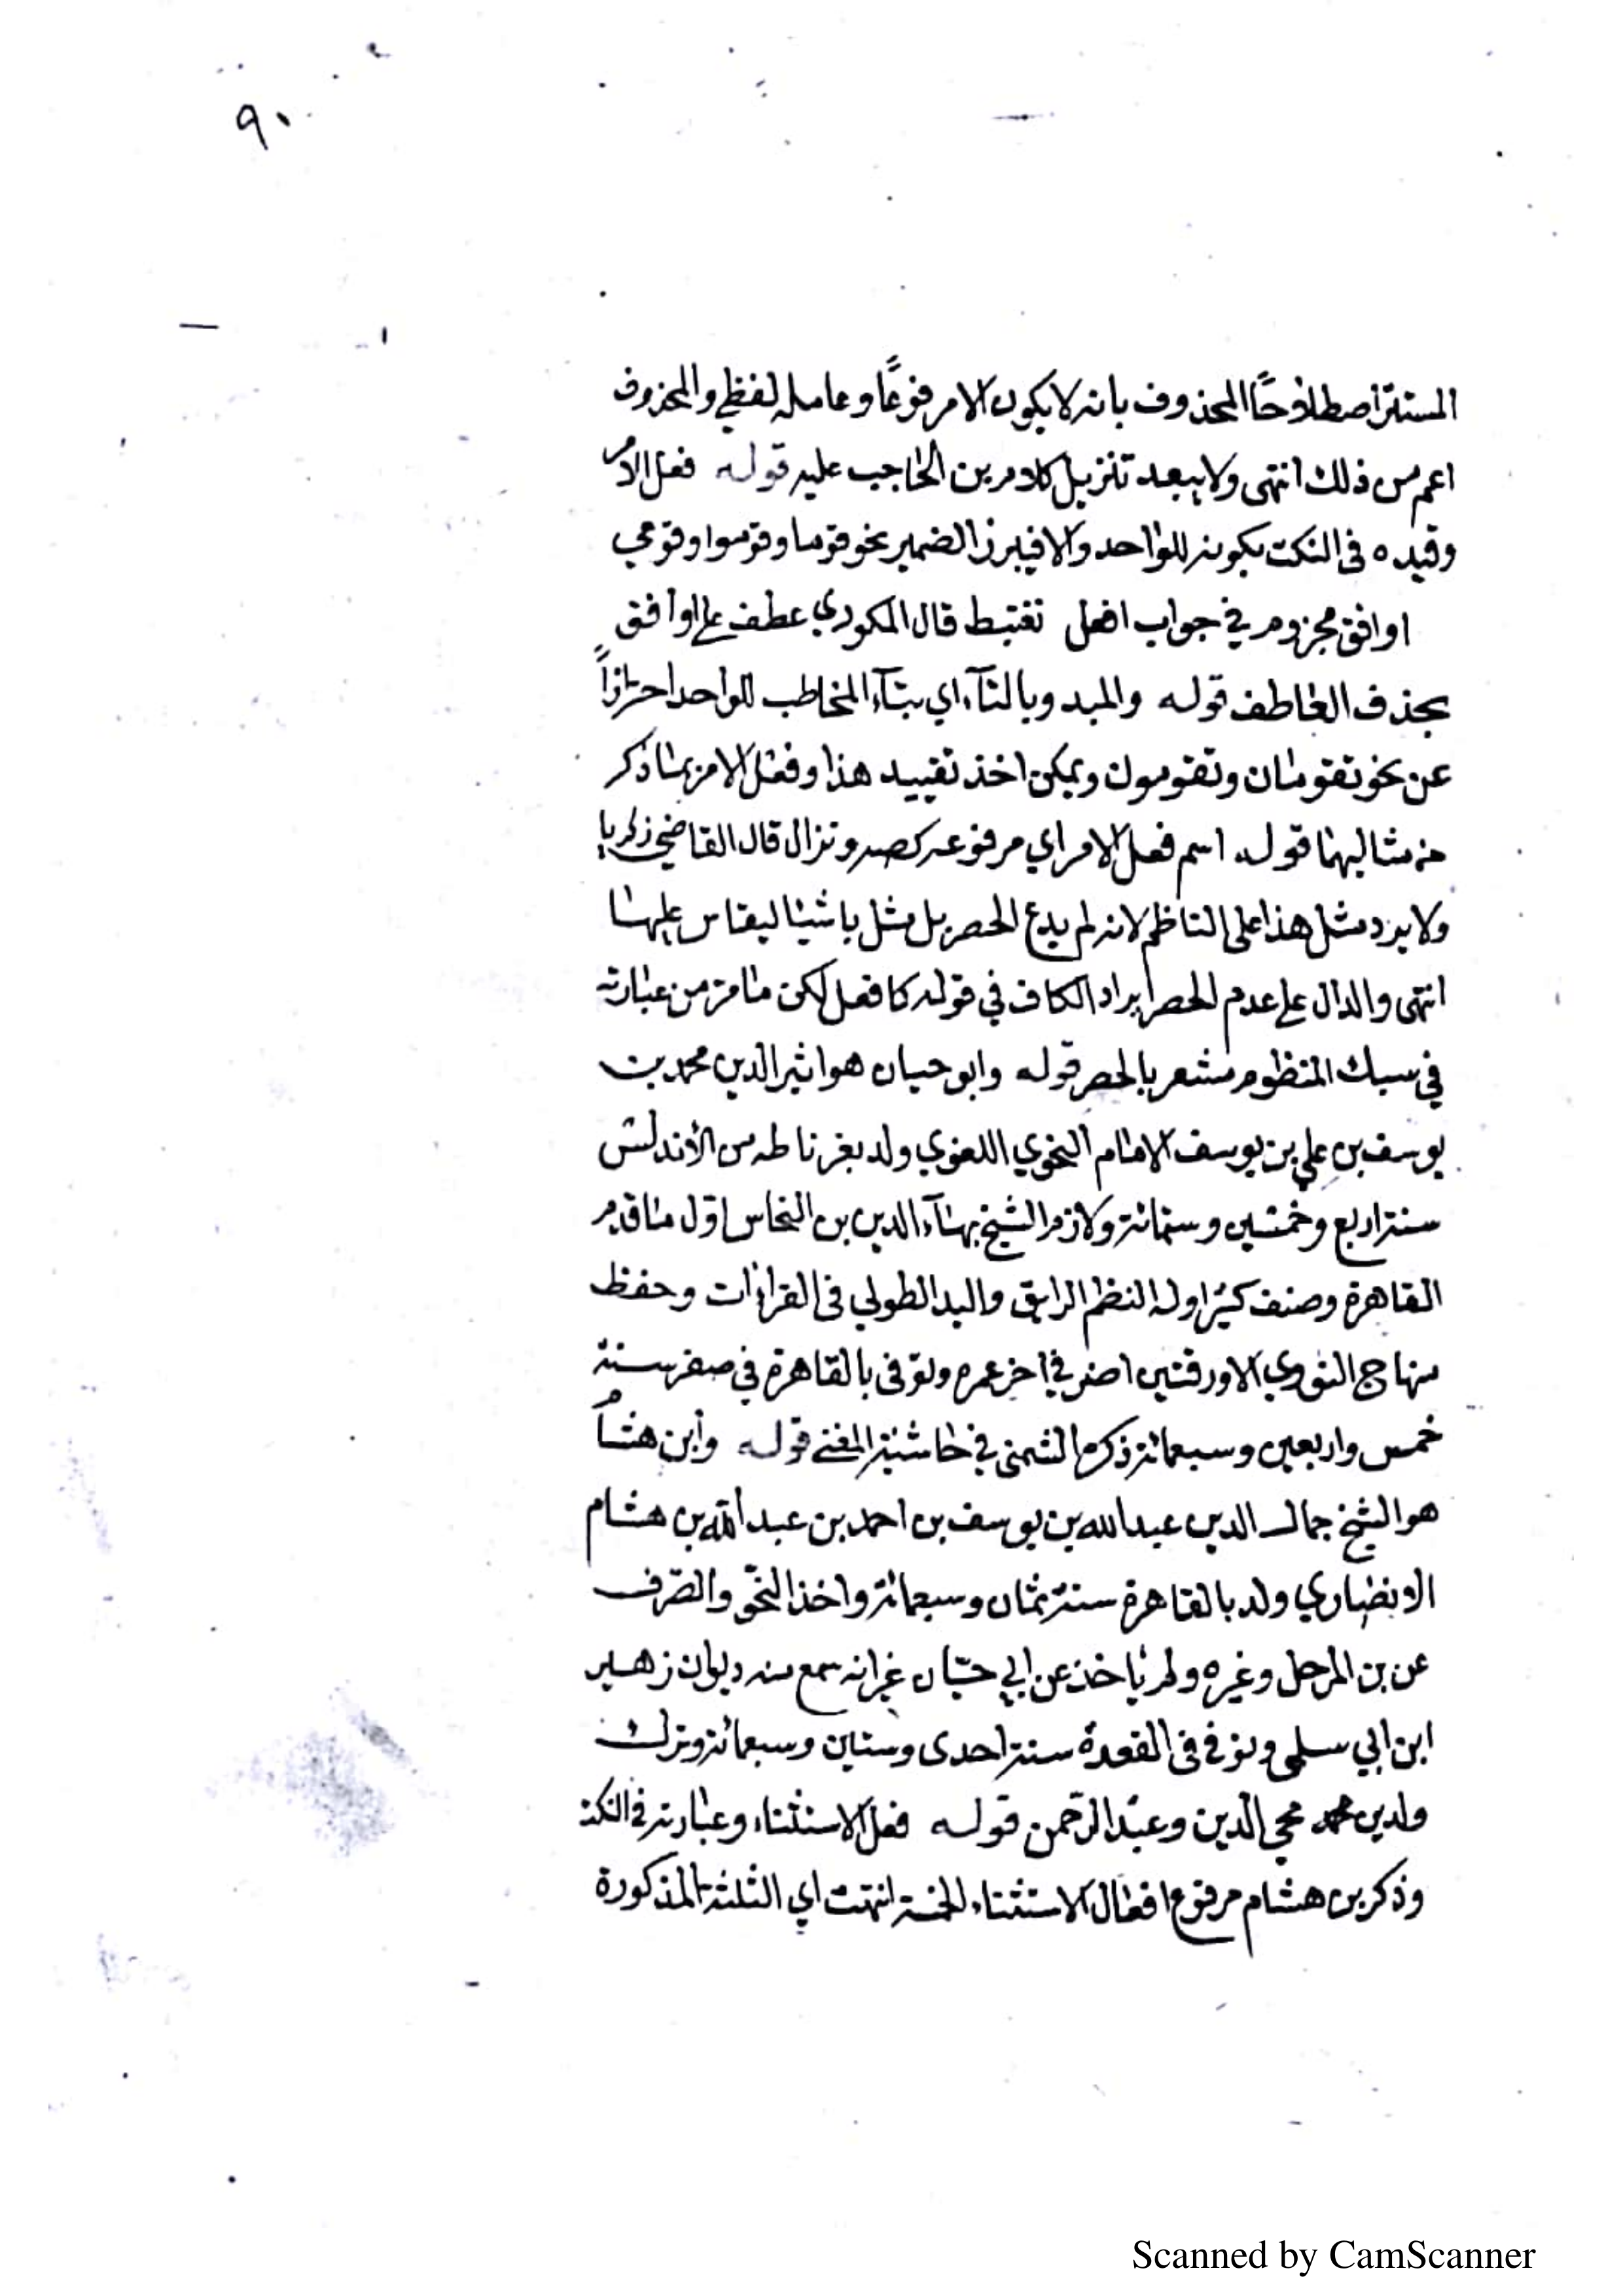 ٩٠
المستتر اصطلاحًا المحذوف بانه لا يكون الا مرفوعًا وعامله لفظي والمحذوف
اعم من ذلك انتهى ولا يبعد تنزيل كلام بن الحاجب عليه قوله فعل الامر
وقيده فى النكت بكونه للواحد والا فيبرز الضمير نحو قوما وقوموا وقومي
اوافق مجزوم في جواب افعل نغتبط قال المكودي عطف على اوافق
بحذف العاطف قوله والمبدو بالتآء اي بتآء المخاطب للواحد احترازاً
عن نحو تقومان وتقومون ويمكن اخذ تقييد هذا وفعل الامر بما ذكر
من مثاليهما قوله اسم فعل الامر اي مرفوعه كصه ونزال قال القاضي زكريا
ولا يرد مثل هذا على الناظم لانه لم يدع الحصر بل مثل باشيا ليقاس عليها
انتهى والدال على عدم الحصر ايراد الكاف في قوله كافعل لكن ما مر من عبارته
في سبك المنظوم مشعر بالحصر قوله وابو حيان هو اثير الدين محمد بن
يوسف بن علي بن يوسف الامام النحوي اللغوي ولد بغرناطه من الأندلس
سنة اربع وخمسين وستمائة ولازم الشيخ بهآء الدين بن النحاس اول ما قدم
القاهرة وصنف كثيرا وله النظم الرايق واليد الطولي فى القراءات وحفظ
منهاج النووي الا ورقتين اضر في اخر عمره وتوفى بالقاهرة في صفر سنة
خمس واربعين وسبعمائة ذكره الشمني في حاشية المغنے قوله وأبن هشام
هو الشيخ جمال الدين عبدالله بن يوسف بن احمد بن عبد الله بن هشام
الانصاري ولد بالقاهرة سنة ثمان وسبعمائة واخذ النحو والصرف
عن بن المرحل وغيره ولم ياخذ عن ابي حيّان غير انه سمع منه ديوان زهير
ابن ابي سلمى وتوفى فى القعدة سنة احدى وستين وسبعمائة وترك
ولدين محمد محي الدين وعبد الرحمن قوله فعل الاستثناء وعبارته في النكت
وذكر بن هشام مرفوع افعال الاستثناء الخمسة انتهت اي الثلثة المذكورة
Scanned by CamScanner